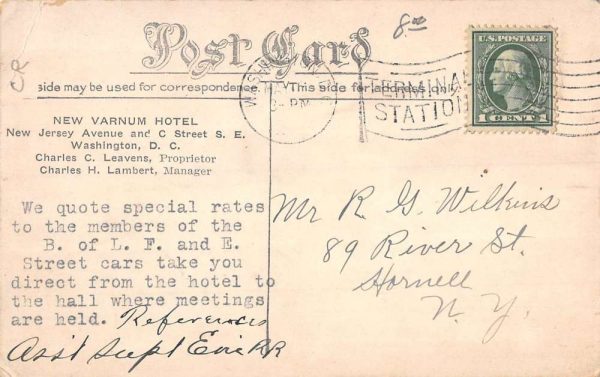 8.00
CR
Post Card
side may be used for correspondence
This side for address only
U.S. POSTAGE
1 CENT 1
TERMINAL
STATION
PM
NEW VARNUM HOTEL
New Jersey Avenue and C Street S. E.
Washington, D. C.
Charles C. Leavens, Proprietor
Charles H. Lambert, Manager
We quote special rates
to the members of the
B. of L. F. and E.
Street cars take you
direct from the hotel to
the hall where meetings
are held. References
Ass't Supt Erie RR
Mr R. G. Wilkins
89 River St.
Hornell
N. Y.